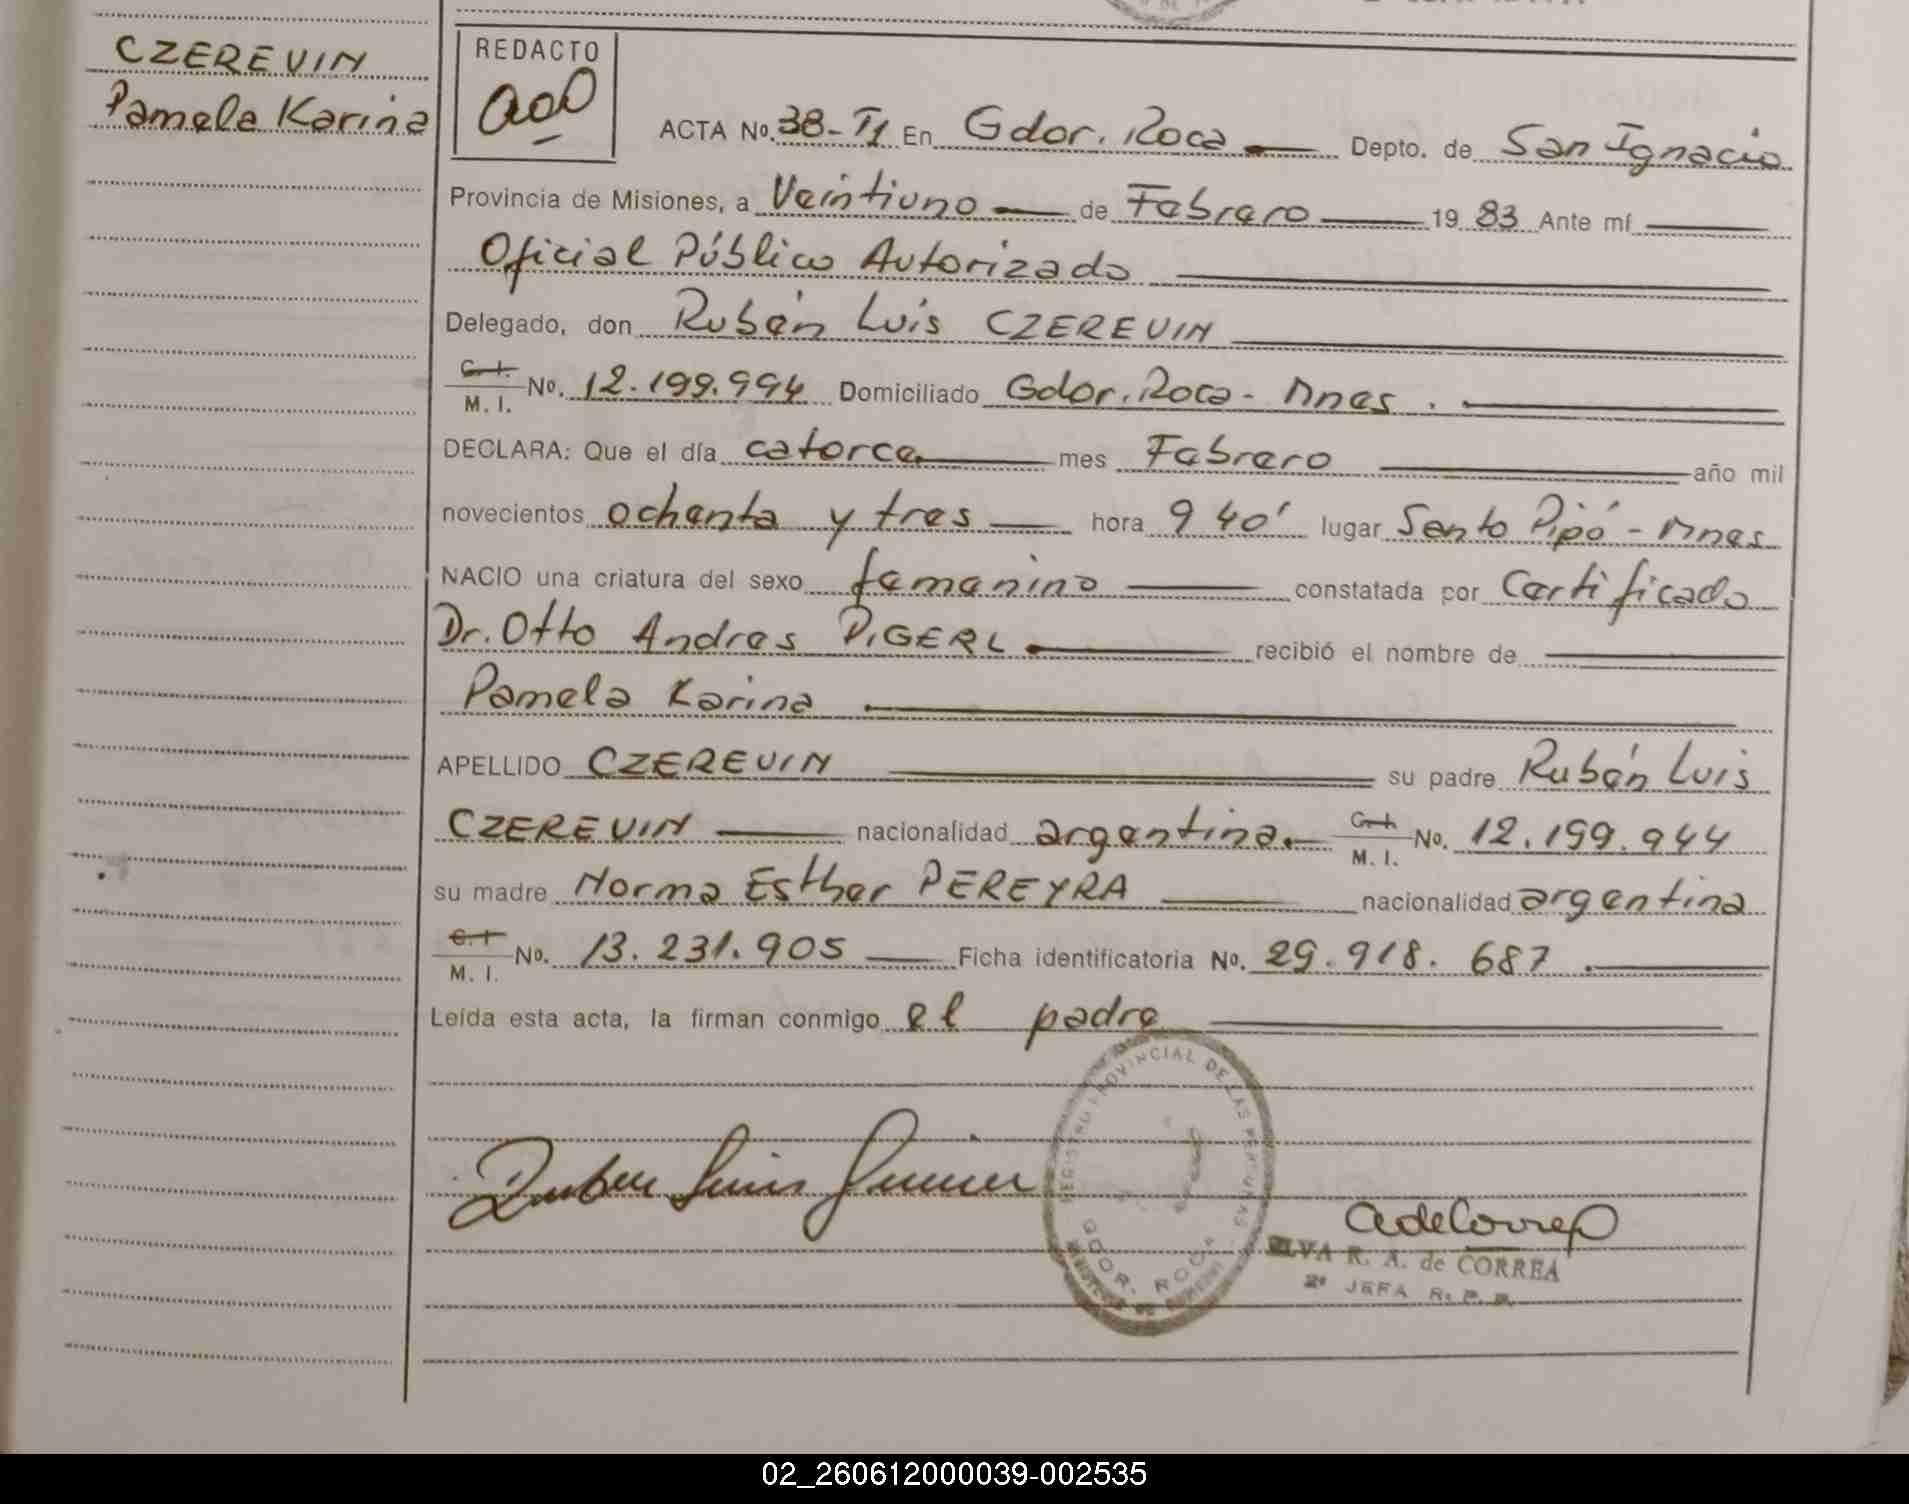 CZEREVIN
Pamela Karina
REDACTO
ACTA No. 38-T1 En Gdor. Roca Depto. de San Ignacio
Provincia de Misiones, a Veintiuno de Febrero 19 83 Ante mí
Oficial Público Autorizado
Delegado, don Rubén Luis CZEREVIN
C. I.
M. I. No. 12.199.994 Domiciliado Gdor. Roca - Mnes.
DECLARA: Que el día catorce mes Febrero año mil
novecientos ochenta y tres hora 9 40' lugar Santo Pipó - Mnes
NACIO una criatura del sexo femenino constatada por Certificado
Dr. Otto Andres PIGERL recibió el nombre de
Pamela Karina
APELLIDO CZEREVIN su padre Rubén Luis
CZEREVIN nacionalidad argentina. C. I. M. I. No. 12.199.944
su madre Norma Esther PEREYRA nacionalidad argentina
C. I.
M. I. No. 13.231.905 Ficha identificatoria No. 29.918.687.
Leída esta acta, la firman conmigo el padre
REGISTRO PROVINCIAL DE LAS PERSONAS
GDOR. ROCA
Ruben Luis
adeCorrea
ELVA R. A. de CORREA
2º JEFA R. P. P.
02_260612000039-002535